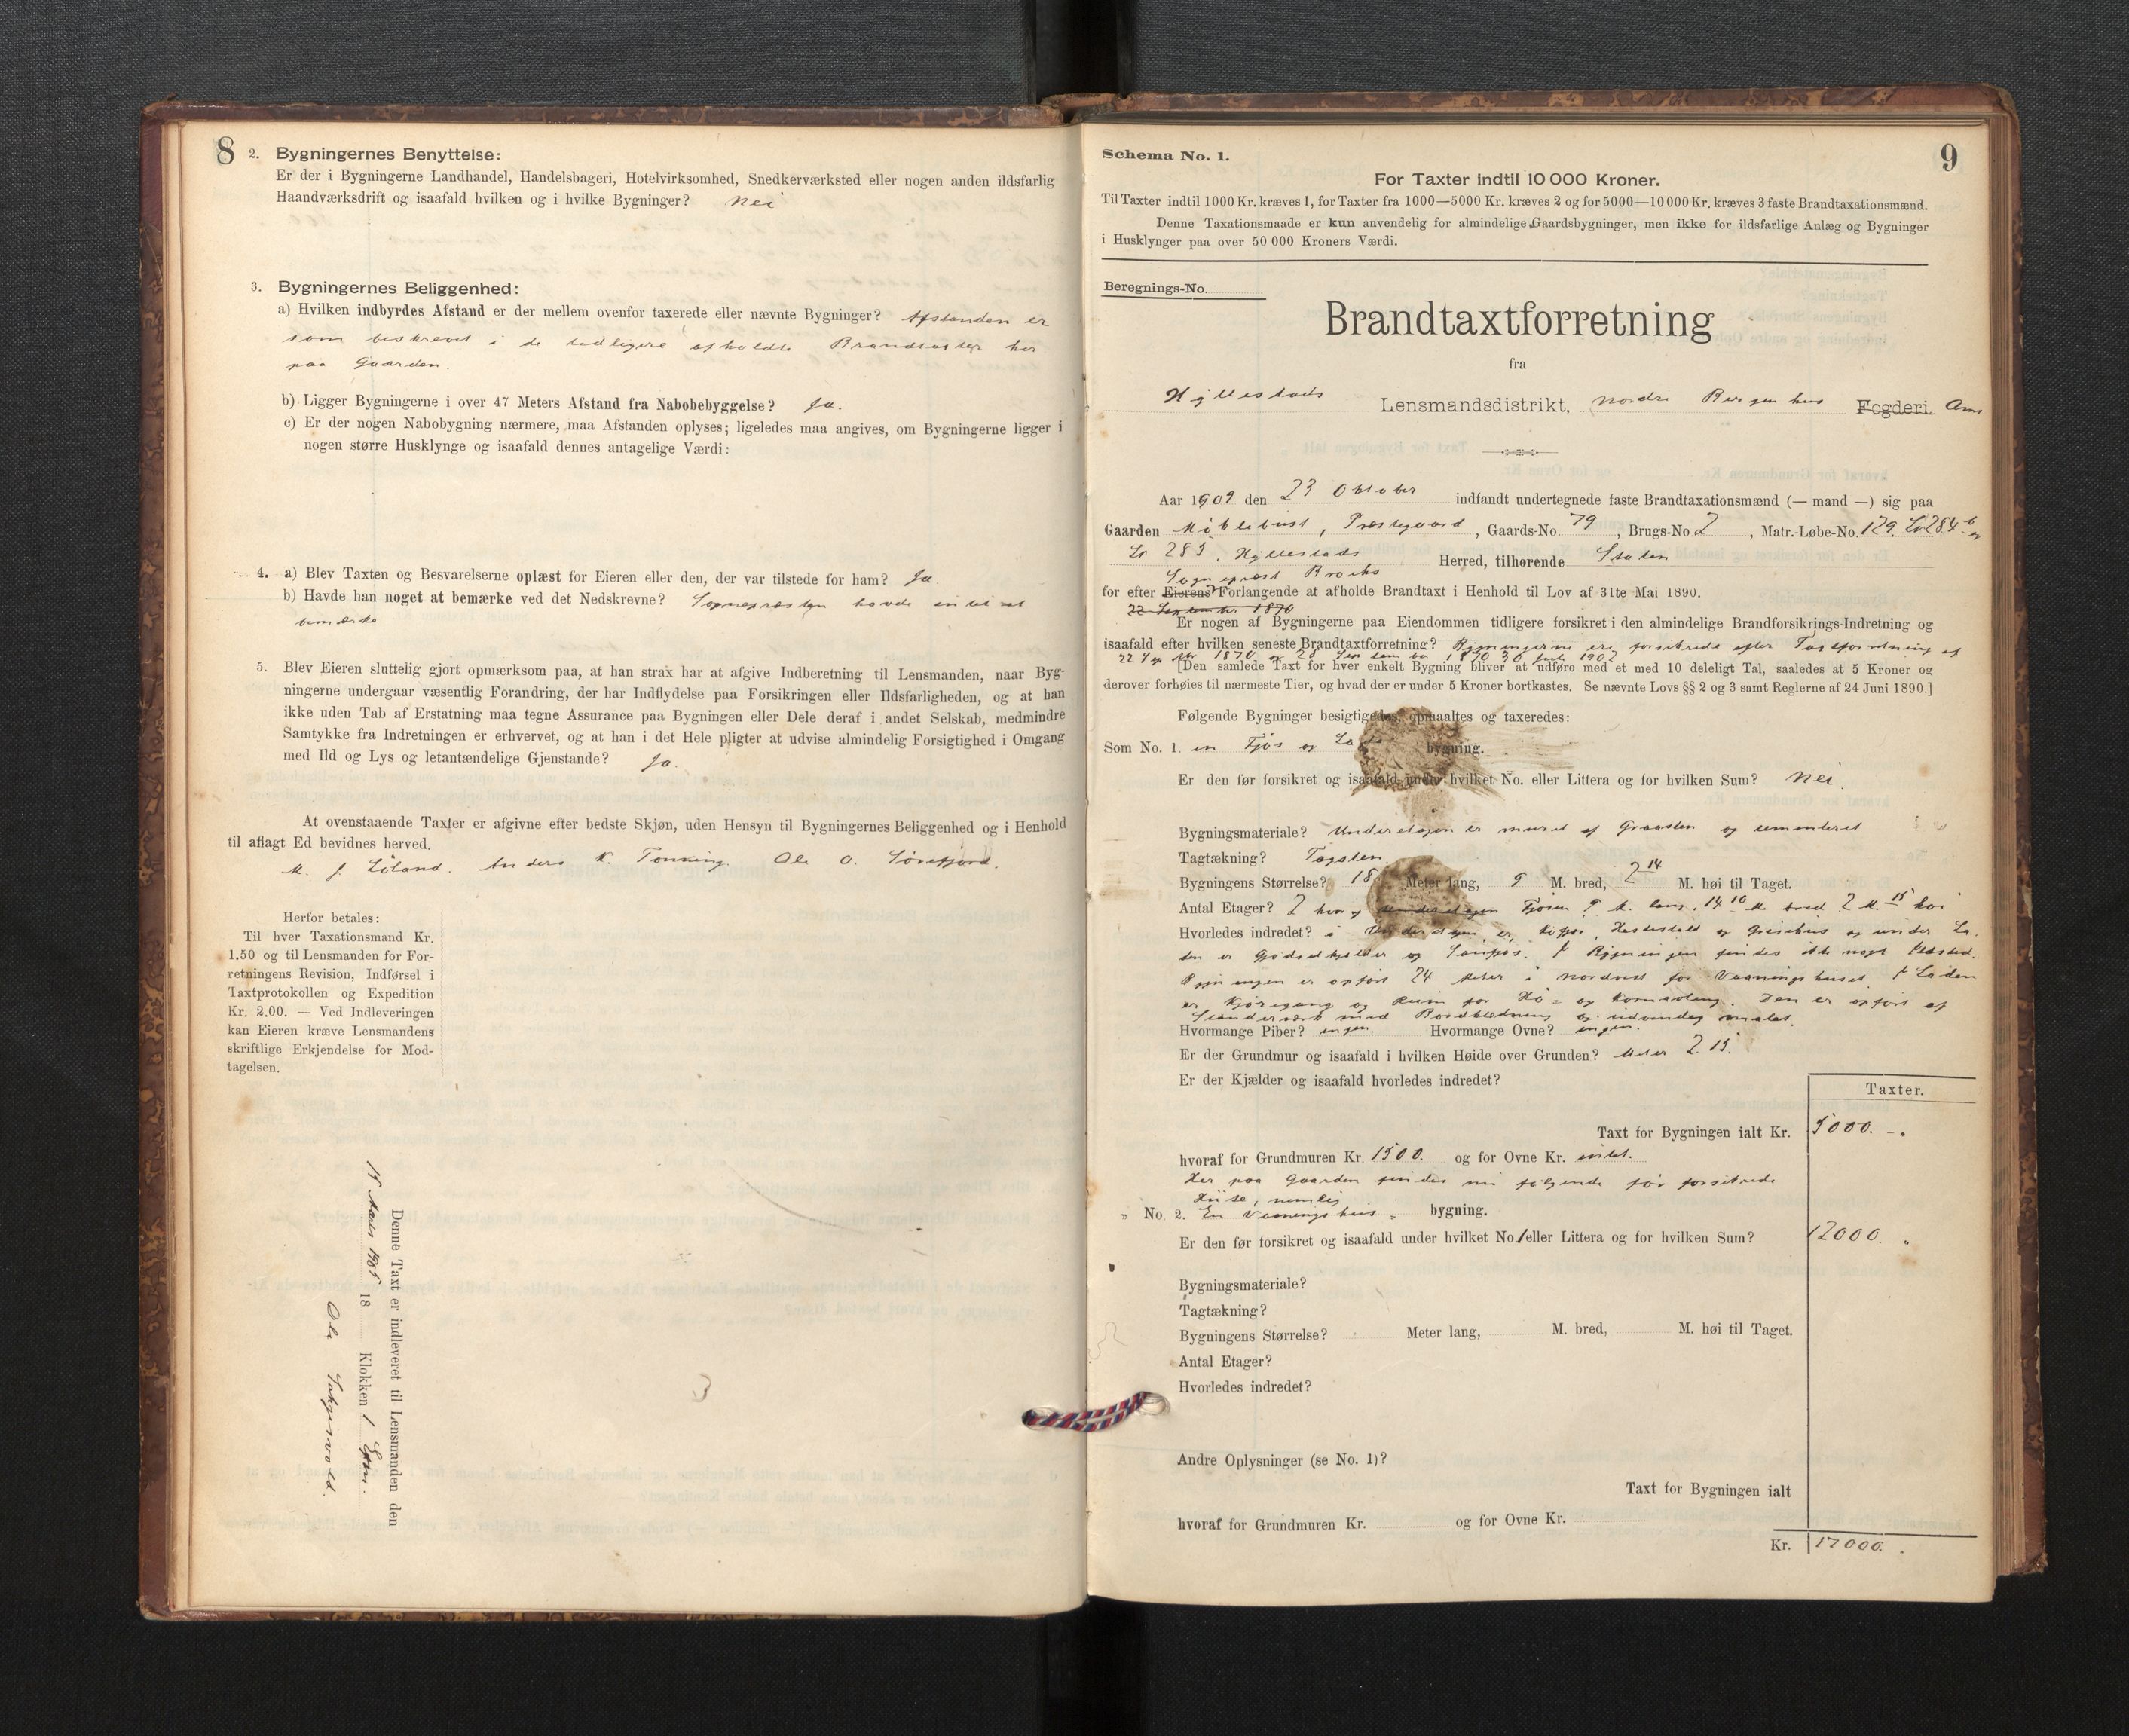 8
2. Bygningernes Benyttelse:
Er der i Bygningerne Landhandel, Handelsbageri, Hotelvirksomhed, Snedkerværksted eller nogen anden ildsfarlig
Haandværksdrift og isaafald hvilken og i hvilke Bygninger? Nei
3. Bygningernes Beliggenhed:
a) Hvilken indbyrdes Afstand er der mellem ovenfor taxerede eller nævnte Bygninger? Afstanden er
som beskrevet i de tidligere afholdte Brandtaxter her
paa Gaarden.
b) Ligger Bygningerne i over 47 Meters Afstand fra Nabobebyggelse? Ja.
c) Er der nogen Nabobygning nærmere, maa Afstanden oplyses; ligeledes maa angives, om Bygningerne ligger i
nogen større Husklynge og isaafald dennes antagelige Værdi:
4. a) Blev Taxten og Besvarelserne oplæst for Eieren eller den, der var tilstede for ham? Ja
b) Havde han noget at bemærke ved det Nedskrevne? Sognepræsten havde intet at
bemærke
5. Blev Eieren sluttelig gjort opmærksom paa, at han strax har at afgive Indberetning til Lensmanden, naar Byg-
ningerne undergaar væsentlig Forandring, der har Indflydelse paa Forsikringen eller Ildsfarligheden, og at han
ikke uden Tab af Erstatning maa tegne Assurance paa Bygningen eller Dele deraf i andet Selskab, medmindre
Samtykke fra Indretningen er erhvervet, og at han i det Hele pligter at udvise almindelig Forsigtighed i Omgang
med Ild og Lys og letantændelige Gjenstande? Ja.
At ovenstaaende Taxter er afgivne efter bedste Skjøn, uden Hensyn til Bygningernes Beliggenhed og i Henhold
til aflagt Ed bevidnes herved.
M. J. Løland. Anders K. Tønning. Ole O. Sørefjord.
Herfor betales:
Til hver Taxationsmand Kr.
1.50 og til Lensmanden for For-
retningens Revision, Indførsel i
Taxtprotokollen og Expedition
Kr. 2.00. — Ved Indleveringen
kan Eieren kræve Lensmandens
skriftlige Erkjendelse for Mod-
tagelsen.
Denne Taxt er indleveret til Lensmanden den
18 Klokken 1
Ole
9
Schema No. 1.
For Taxter indtil 10 000 Kroner.
Til Taxter indtil 1000 Kr. kræves 1, for Taxter fra 1000—5000 Kr. kræves 2 og for 5000—10 000 Kr. kræves 3 faste Brandtaxationsmænd.
Denne Taxationsmaade er kun anvendelig for almindelige Gaardsbygninger, men ikke for ildsfarlige Anlæg og Bygninger
i Husklynger paa over 50 000 Kroners Værdi.
Beregnings-No.
Brandtaxtforretning
fra
Hyllestads Lensmandsdistrikt, Nordre Bergenhus Fogderi. Amt
Aar 1909 den 23 Oktober indfandt undertegnede faste Brandtaxationsmænd (— mand —) sig paa
Gaarden Myklebust, Præstegaard, Gaards-No. 79, Brugs-No. 2, Matr.-Løbe-No. 129. Lø 284 b
Lø 285. Hyllestads Herred, tilhørende Staten
Sogneprest Brochs
for efter Eierens Forlangende at afholde Brandtaxt i Henhold til Lov af 31te Mai 1890.
22 September 1870
Er nogen af Bygningerne paa Eiendommen tidligere forsikret i den almindelige Brandforsikrings-Indretning og
isaafald efter hvilken seneste Brandtaxtforretning? Bygningerne ere forsikrede efter Taxtforretning af
22 Sept 1870 og 28 September 1890 30 Juli 1902
[Den samlede Taxt for hver enkelt Bygning bliver at udføre med et med 10 deleligt Tal, saaledes at 5 Kroner og
derover forhøies til nærmeste Tier, og hvad der er under 5 Kroner bortkastes. Se nævnte Lovs §§ 2 og 3 samt Reglerne af 24 Juni 1890.]
Følgende Bygninger besigtigedes, opmaaltes og taxeredes:
Som No. 1. en Fjøs og bygning.
Er den før forsikret og isaafald under hvilket No. eller Littera og for hvilken Sum? Nei.
Bygningsmateriale? Underetagen er muret af Graasten og cementeret
Tagtækning? Tagsten.
Bygningens Størrelse? 18 Meter lang, 9 M. bred, 2 14 M. høi til Taget.
Antal Etager? 2 hvoraf Underetagen Fjøsen 9 M. lang, 14 10 M. bred 2 M. 15 høi
Hvorledes indredet? i Underetagen er Kofjøs, Hestestald og Grisehus og under La-
den er Gjødselkjelder og Saufjøs. I Bygningen findes ikke noget Ildsted.
Bygningen er opført 24 Meter i Nordvest for Vaaningshuset. I Laden
er Kjøregang og Rum for Hø- og Kornavling. Den er opført af
Stenderværk med Bordklædning og udvendig malet.
Hvormange Piber? ingen Hvormange Ovne? ingen.
Er der Grundmur og isaafald i hvilken Høide over Grunden? Meter 2.15.
Er der Kjælder og isaafald hvorledes indredet?
Taxter.
Taxt for Bygningen ialt Kr. 5000. -.
hvoraf for Grundmuren Kr. 1500. og for Ovne Kr. intet.
Her paa Gaarden findes nu følgende før forsikrede
Huse, nemlig
" No. 2. En Vaaningshus " bygning.
Er den før forsikret og isaafald under hvilket No. 1 eller Littera og for hvilken Sum? 12000. "
Bygningsmateriale?
Tagtækning?
Bygningens Størrelse? Meter lang, M. bred, M. høi til Taget.
Antal Etager?
Hvorledes indredet?
Andre Oplysninger (se No. 1)?
Taxt for Bygningen ialt
hvoraf for Grundmuren Kr. og for Ovne Kr.
Kr. 17000.